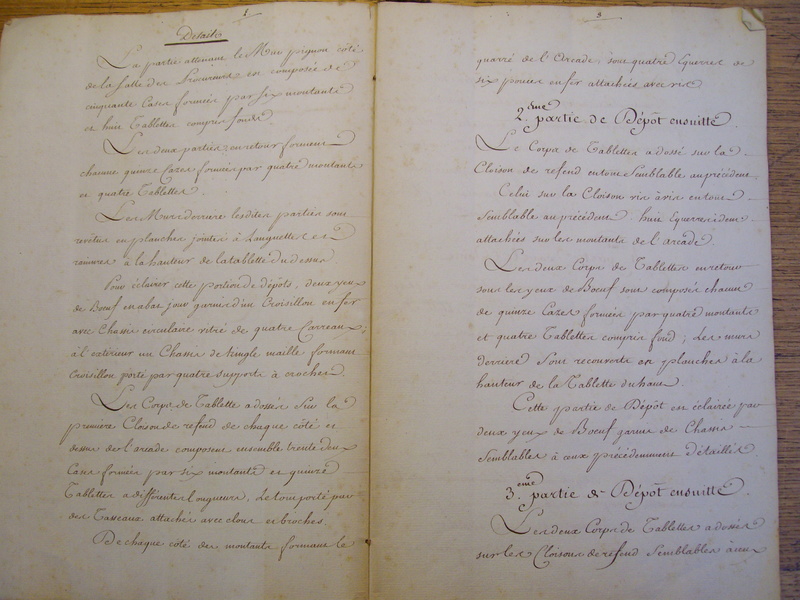 Détails
La partie attenant le Mur pignon côté
de la Salle des Procureurs est composée de
cinquante Cases formées par six montants
et huit Tablettes compris fonds.
Les deux parties en retour forment
chacune quinze Cazes formées par quatre montants
et quatre Tablettes.
Les Murs derrière lesdites parties sont
revêtus en planches jointes à Languettes et
rainures à la hauteur de la tablette du dessus.
Pour éclairer cette portion de dépôts, deux yeux
de Boeuf en abas jour garnis d'un Croisillon en fer
avec Chassis circulaire vitré de quatre Carreaux;
à l'extérieur un Chassis de tringle maille formant
Croisillon porté par quatre supports à crochets.
Les Corps de Tablette adossés sur la
première Cloison de refend de chaque côté et
dessus de l'arcade composent ensemble trente deux
Cases formées par six montants et quinze
Tablettes a différentes longueurs, Le tout porté par
des Tasseaux attachés avec clous et broches.
De chaque côté des montants formant le
3
quarré de l'Arcade, sont quatre Equerres de
six pouces en fer attachées avec vis
2.eme partie de Dépôt ensuitte
Le Corps de Tablettes adossé sur la
Cloison de refend en tout Semblable au précédent
Celui sur la Cloison vis àvis en tout
Semblable au précédent. huit Equerres idem
attachées sur les montants de l'arcade.
Les deux Corps de Tablettes en retour
sous les yeux de Boeuf sont composés chacun
de quinze Cazes formées par quatre montants
et quatre Tablettes compris fond; Les murs
derrière Sont recouverts en planches à la
hauteur de la Tablette du haut.
Cette partie de Dépôt est éclairée par
deux yeux de Boeuf garnis de Chassis
Semblables à ceux précédemment détaillés.
3.eme partie de Dépôt ensuitte
Les deux Corps de Tablettes adossés
sur les Cloisons de refend Semblables à ceux